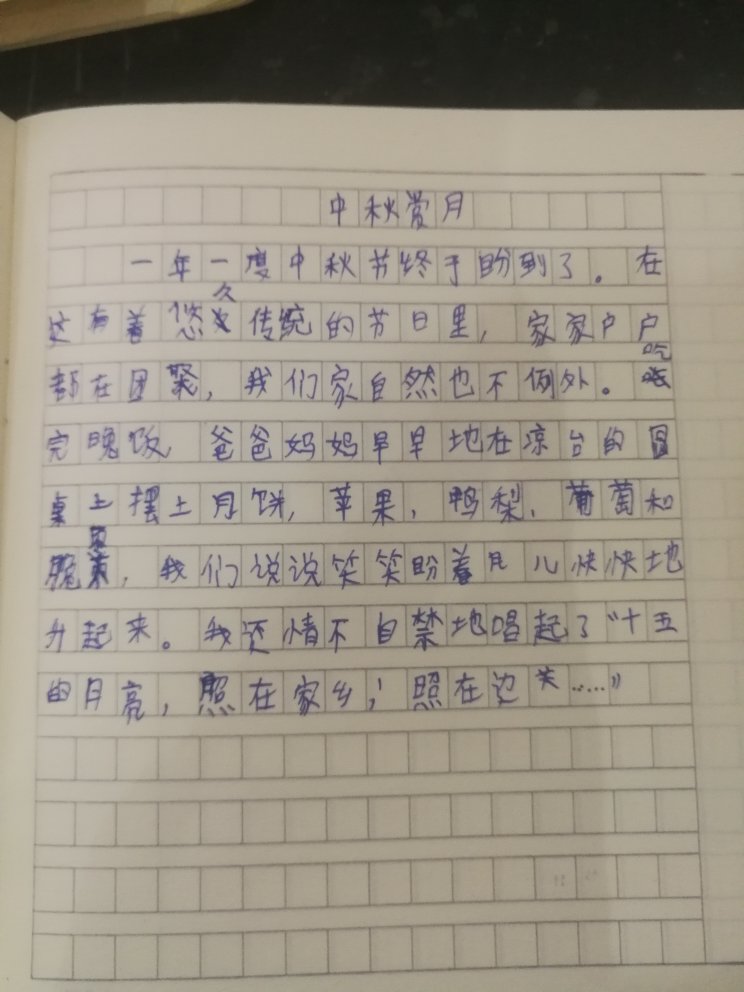 中秋赏月
一年一度中秋节终于盼到了。在
这有着悠久传统的节日里，家家户户
都在团聚，我们家自然也不例外。吃
完晚饭，爸爸妈妈早早地在凉台的圆
桌上摆上月饼，苹果，鸭梨，葡萄和
脆枣，我们说说笑笑盼着月儿快快地
升起来。我还情不自禁地唱起了“十五
的月亮，照在家乡，照在边关……”